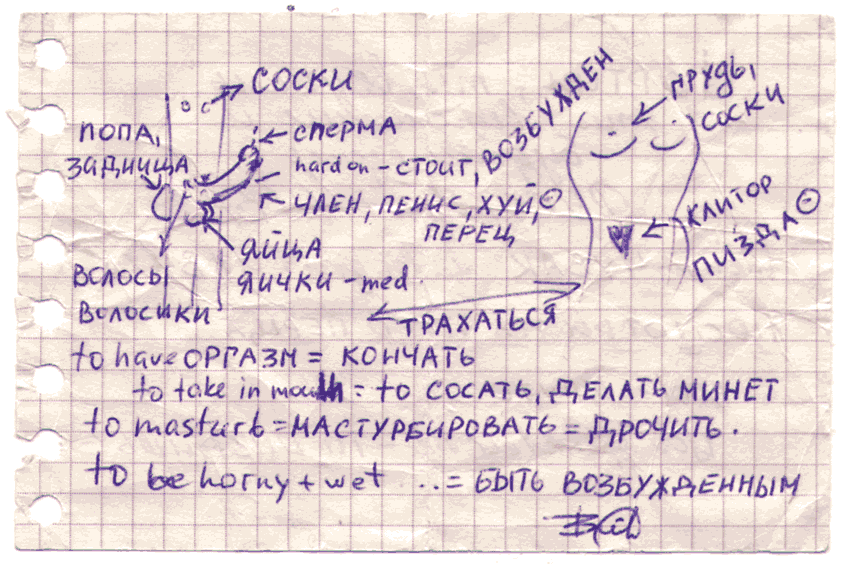 СОСКИ
ПОПА,
ЗАДНИЦА
СПЕРМА
hard on - СТОИТ, ВОЗБУЖДЕН
ЧЛЕН, ПЕНИС, ХУЙ,
ПЕРЕЦ
ЯЙЦА
ЯИЧКИ - med.
ВОЛОСЫ
ВОЛОСИКИ
ГРУДЬ,
СОСКИ
КЛИТОР
ПИЗДА
ТРАХАТЬСЯ
to have ОРГАЗМ = КОНЧАТЬ
to take in mouth = to СОСАТЬ, ДЕЛАТЬ МИНЕТ
to masturb = МАСТУРБИРОВАТЬ = ДРОЧИТЬ.
to be horny + wet ..= БЫТЬ ВОЗБУЖДЕННЫМ